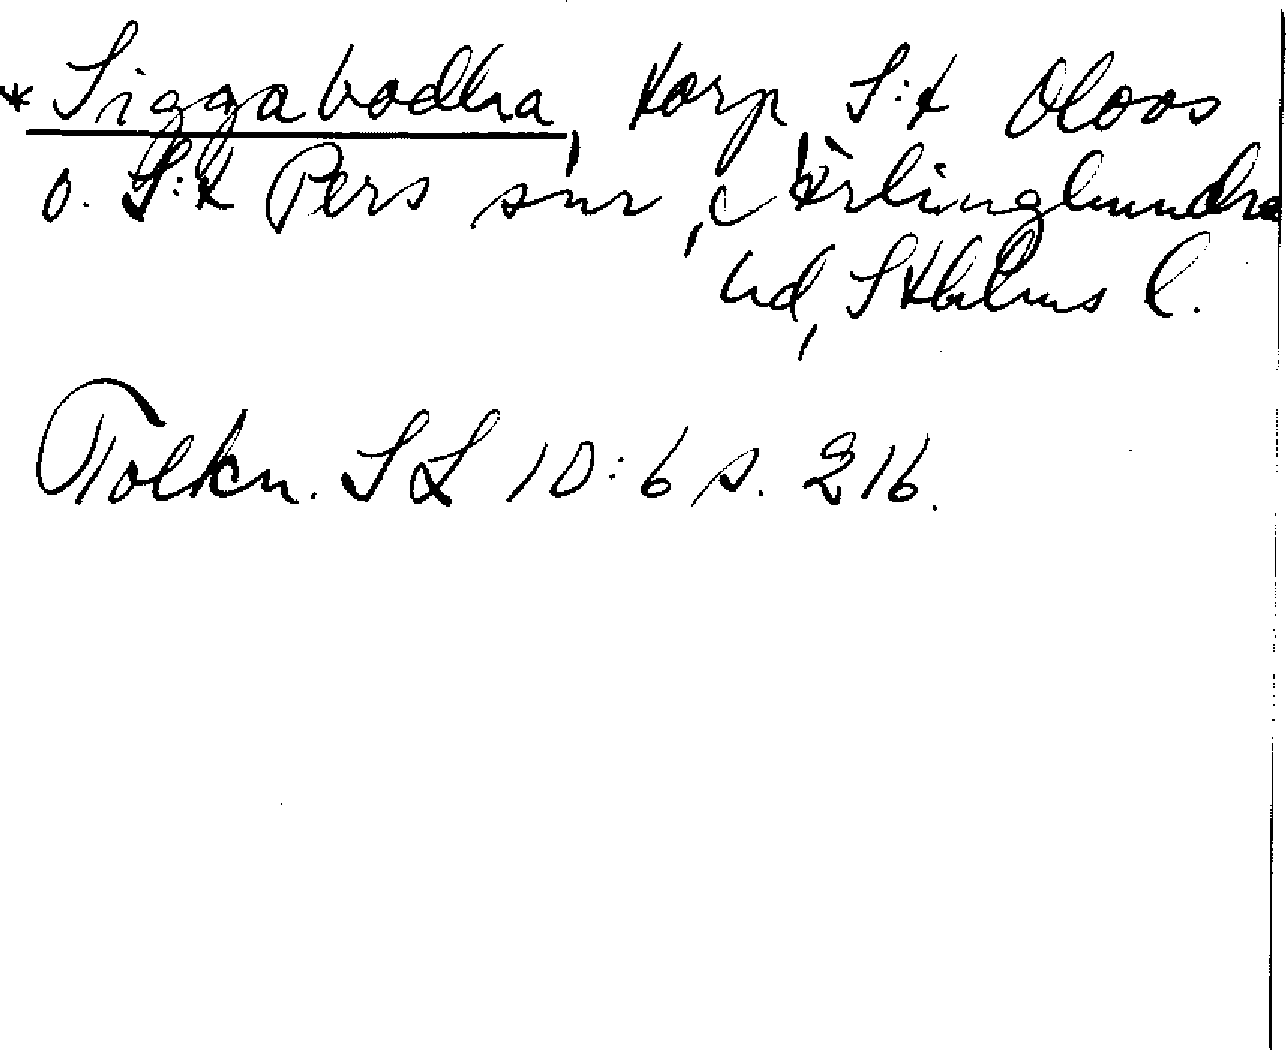 * Siggabodha, torp, S:t Oloos
o. S:t Pers snr, Ärlinghundra
hd, Sthlms l.
Tolkn. SL 10:6 s. 216.